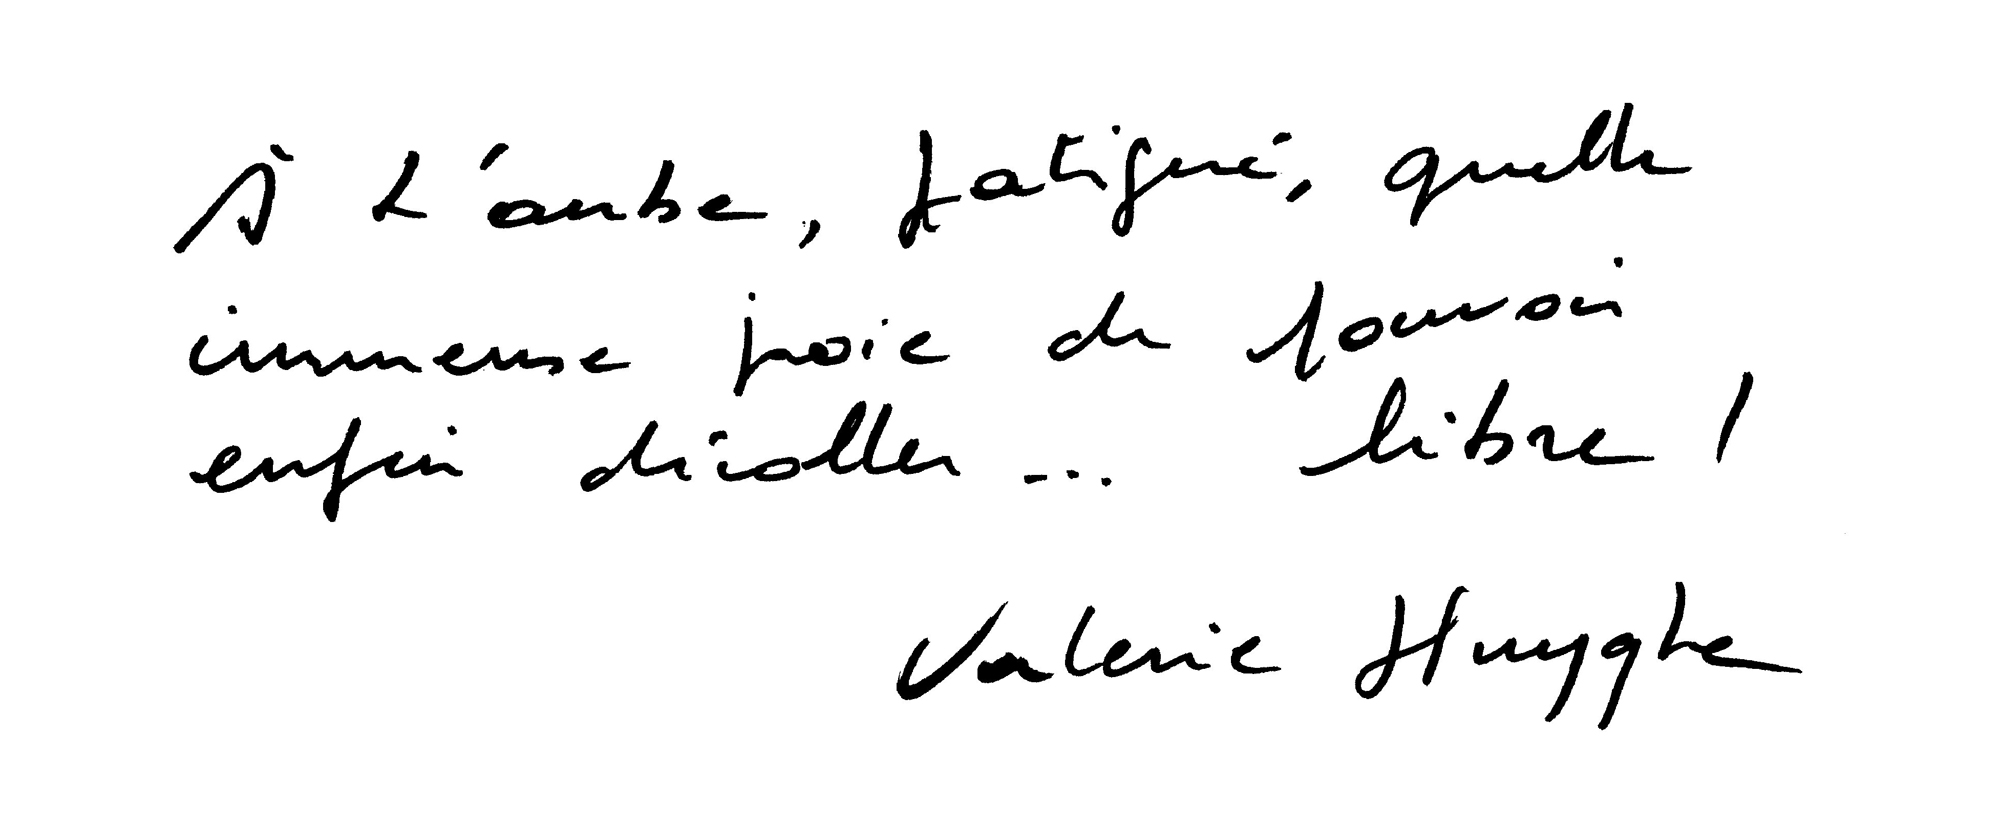 À L'aube, fatigué, quelle
immense joie de pouvoir
enfin décoller... libre !
Valerie Huyghe